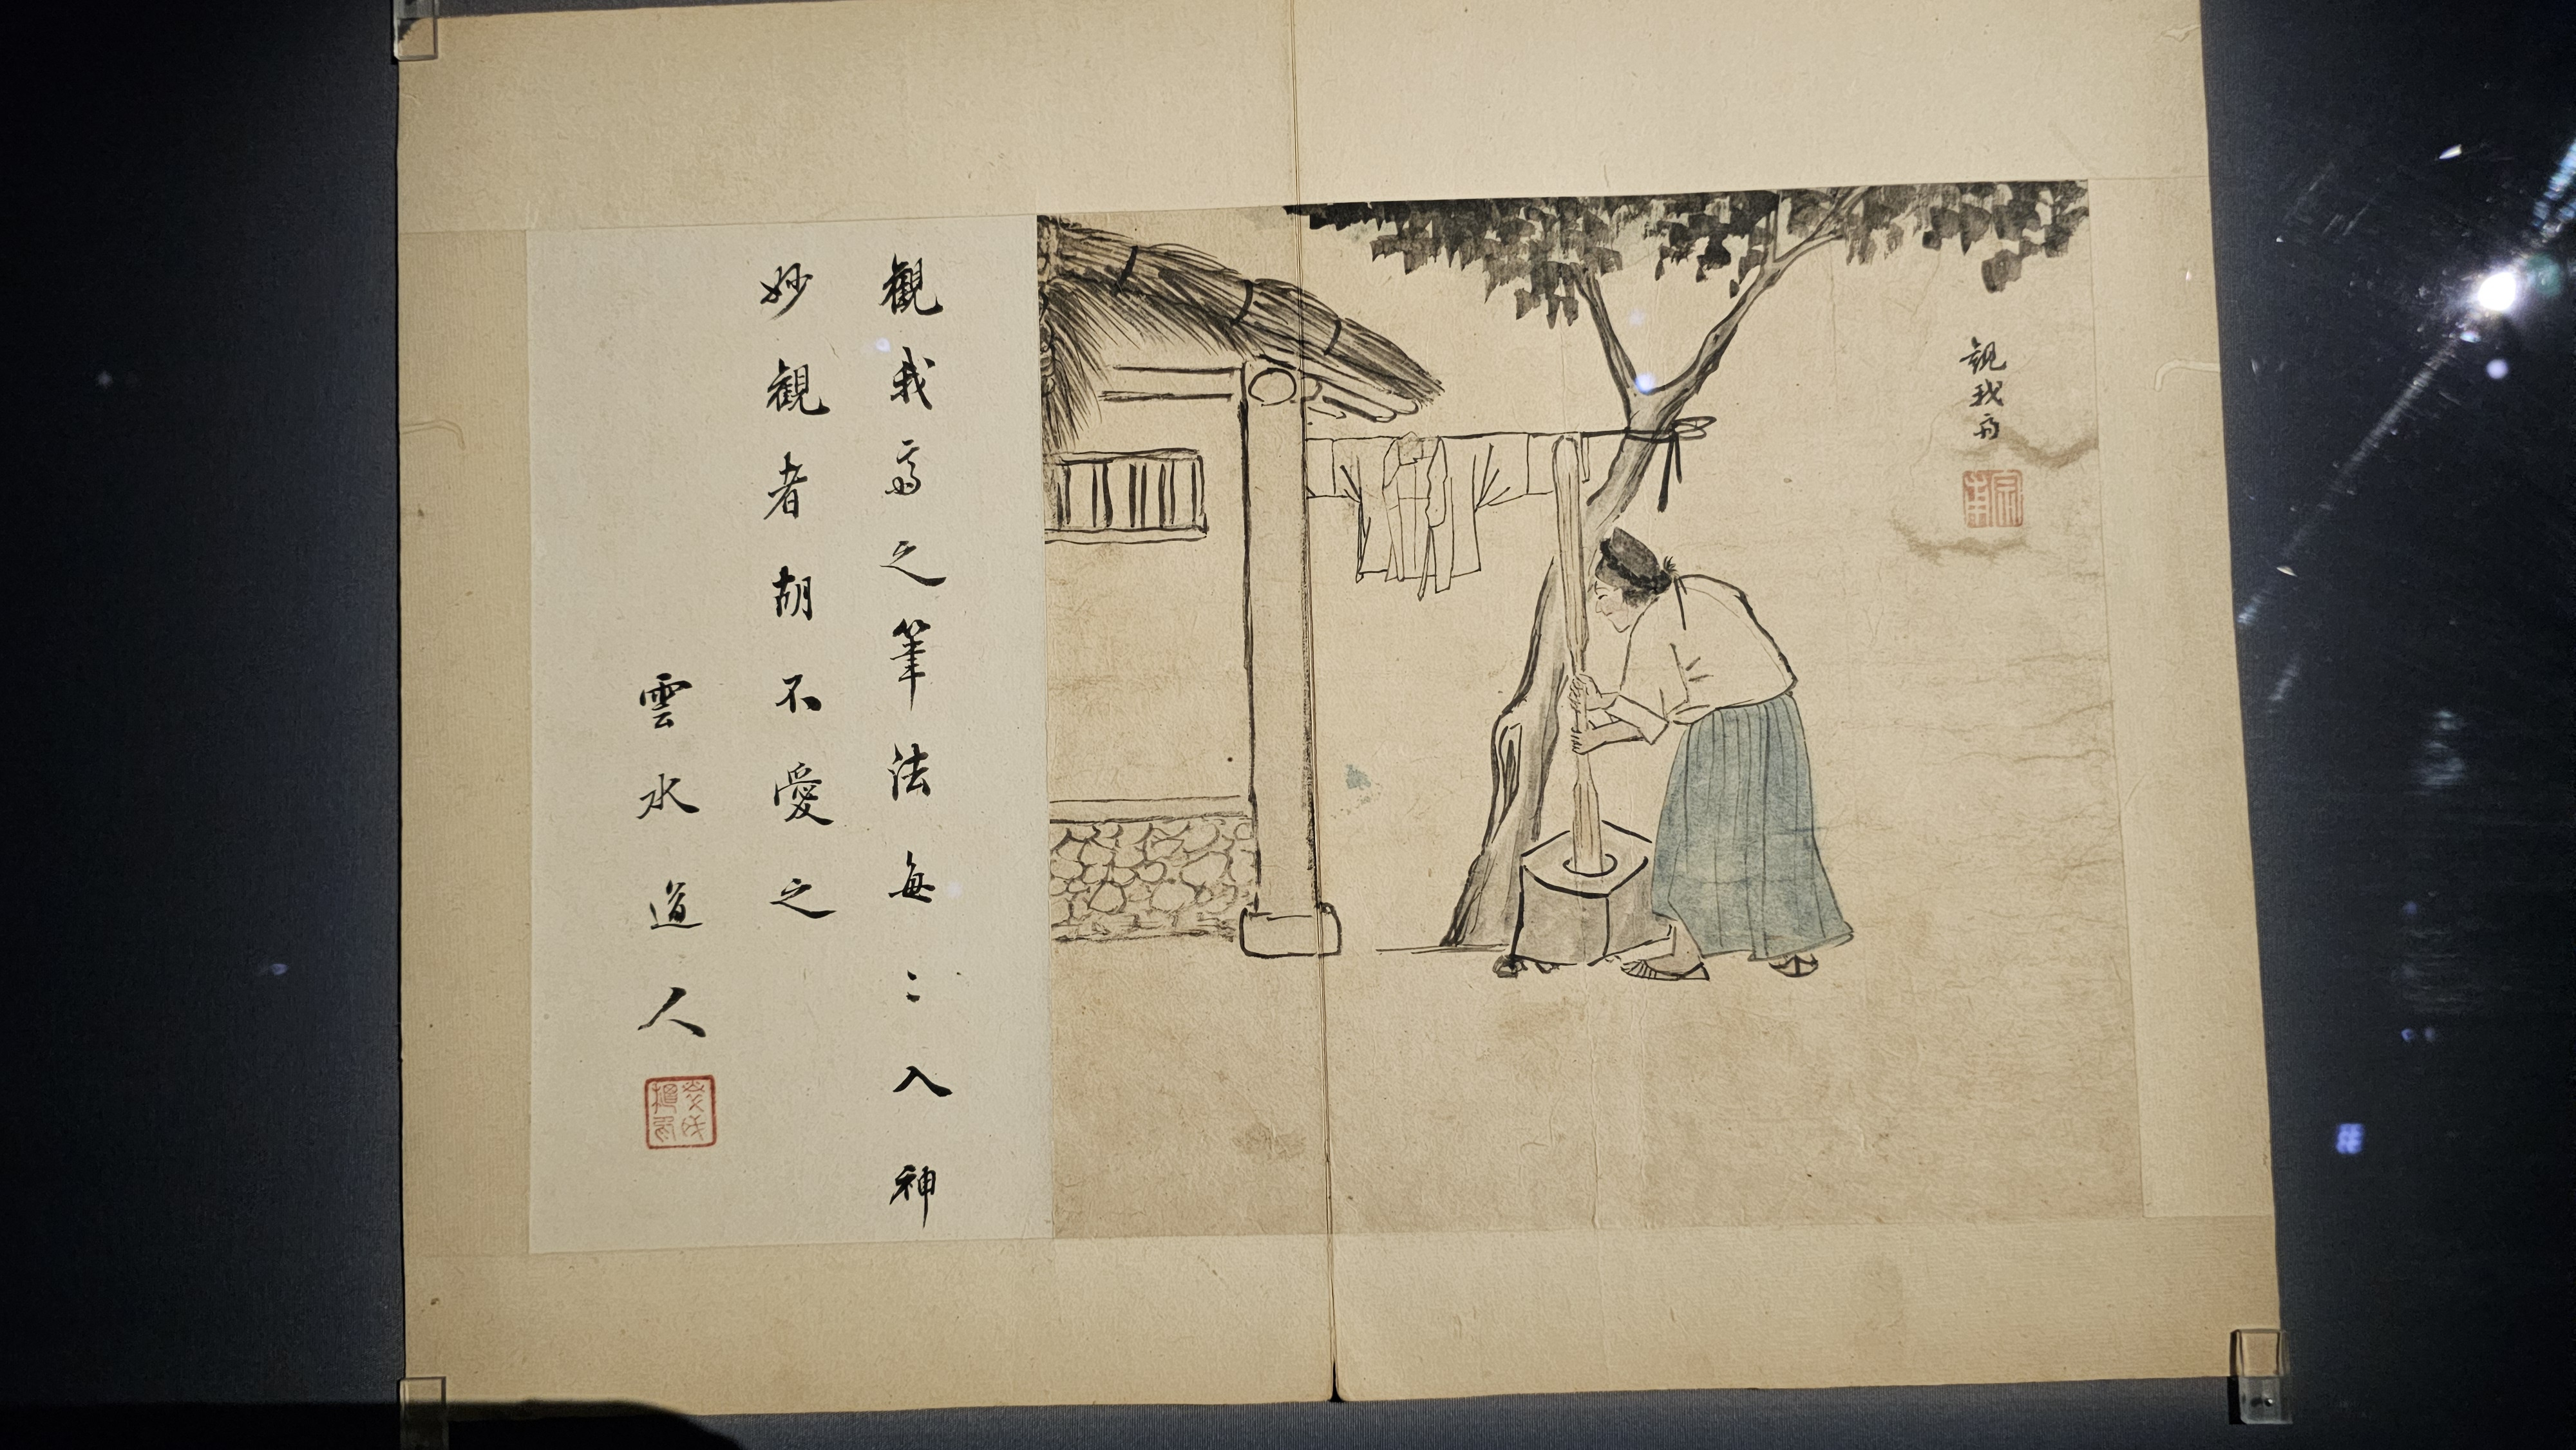 觀我齋
觀我齋之筆法每〻入神
妙觀者胡不愛之
雲水道人